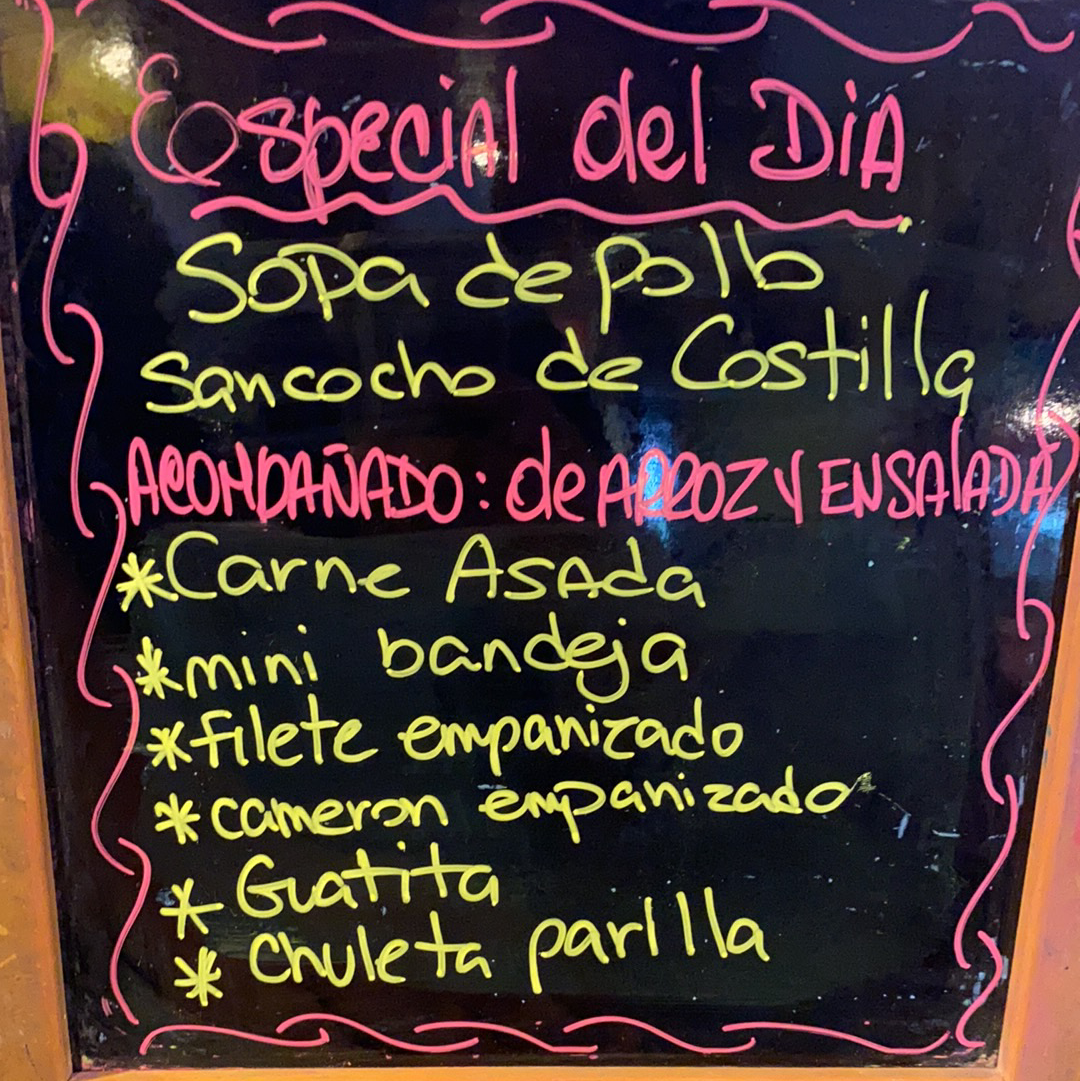 Especial del DiA
Sopa de pollo
Sancocho de Costilla
ACOMPAÑADO: de ARROZ Y ENSAlADA
*Carne Asada
*mini bandeja
*filete empanizado
*cameron empanizado
* Guatita
* Chuleta parllla